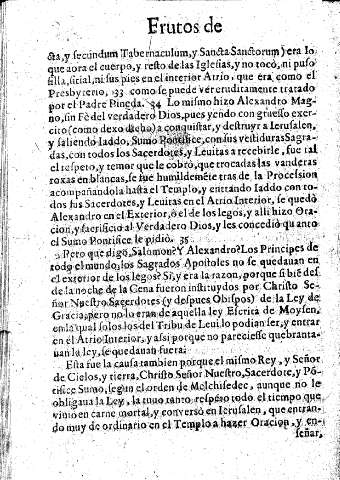 Frutos de
cta, y secundum Tabernaculum, y Sancta Sanctorum) era lo
que aora el cuerpo, y resto de las Iglesias, y no tocò, ni puso
silla, sitial, ni sus pies en el interior Atrio, que era como el
Presbyterio, 33 como se puede ver eruditamente tratado
por el Padre Pineda. 34 Lo mismo hizo Alexandro Mag-
no, sin Fè del verdadero Dios, pues yendo con gruesso exer-
cito (como dexo dicho) a conquistar, y destruyr a Ierusalen,
y saliendo Iaddo, Sumo Pontifice, con sus vestiduras Sagra-
das, con todos los Sacerdotes, y Leuitas a recebirle, fue tal
el respeto, y temor que le cobrò, que trocadas las vanderas
roxas en blancas, se fue humildemẽte tras de la Procession
acompañandola hasta el Templo, y entrando Iaddo con to-
dos sus Sacerdotes, y Leuitas en el Atrio Interior, se quedò
Alexandro en el Exterior, ò el de los legos, y alli hizo Ora-
cion, y sacrificio al Verdadero Dios, y les concediò quanto
el Sumo Pontifice le pidio. 35
Pero que digo, Salomon? Y Alexandro? Los Principes de
todo el mundo, los Sagrados Apostoles no se quedauan en
el exterior de los legos? Si, y era la razon, porque si biẽ des
de la noche de la Cena fueron instituydos por Christo Se-
ñor Nuestro, Sacerdotes (y despues Obispos) de la Ley de
Gracia, pero no lo eran de aquella ley Escrita de Moysen,
en la qual solos los del Tribu de Leui, lo podian ser, y entrar
en el Atrio Interior, y assi porque no pareciesse quebranta-
uan la ley, se quedauan fuera.
Esta fue la causa tambien porque el mismo Rey, y Señor
de Cielos, y tierra, Christo Señor Nuestro, Sacerdote, y Põ-
tifice Sumo, segun el orden de Melchisedec, aunque no le
obligaua la Ley, la tuuo tanto respeto todo el tiempo que
viuio en carne mortal, y conuersò en Ierusalen, que entran-
do muy de ordinario en el Templo a hazer Oracion, y en-
señar,